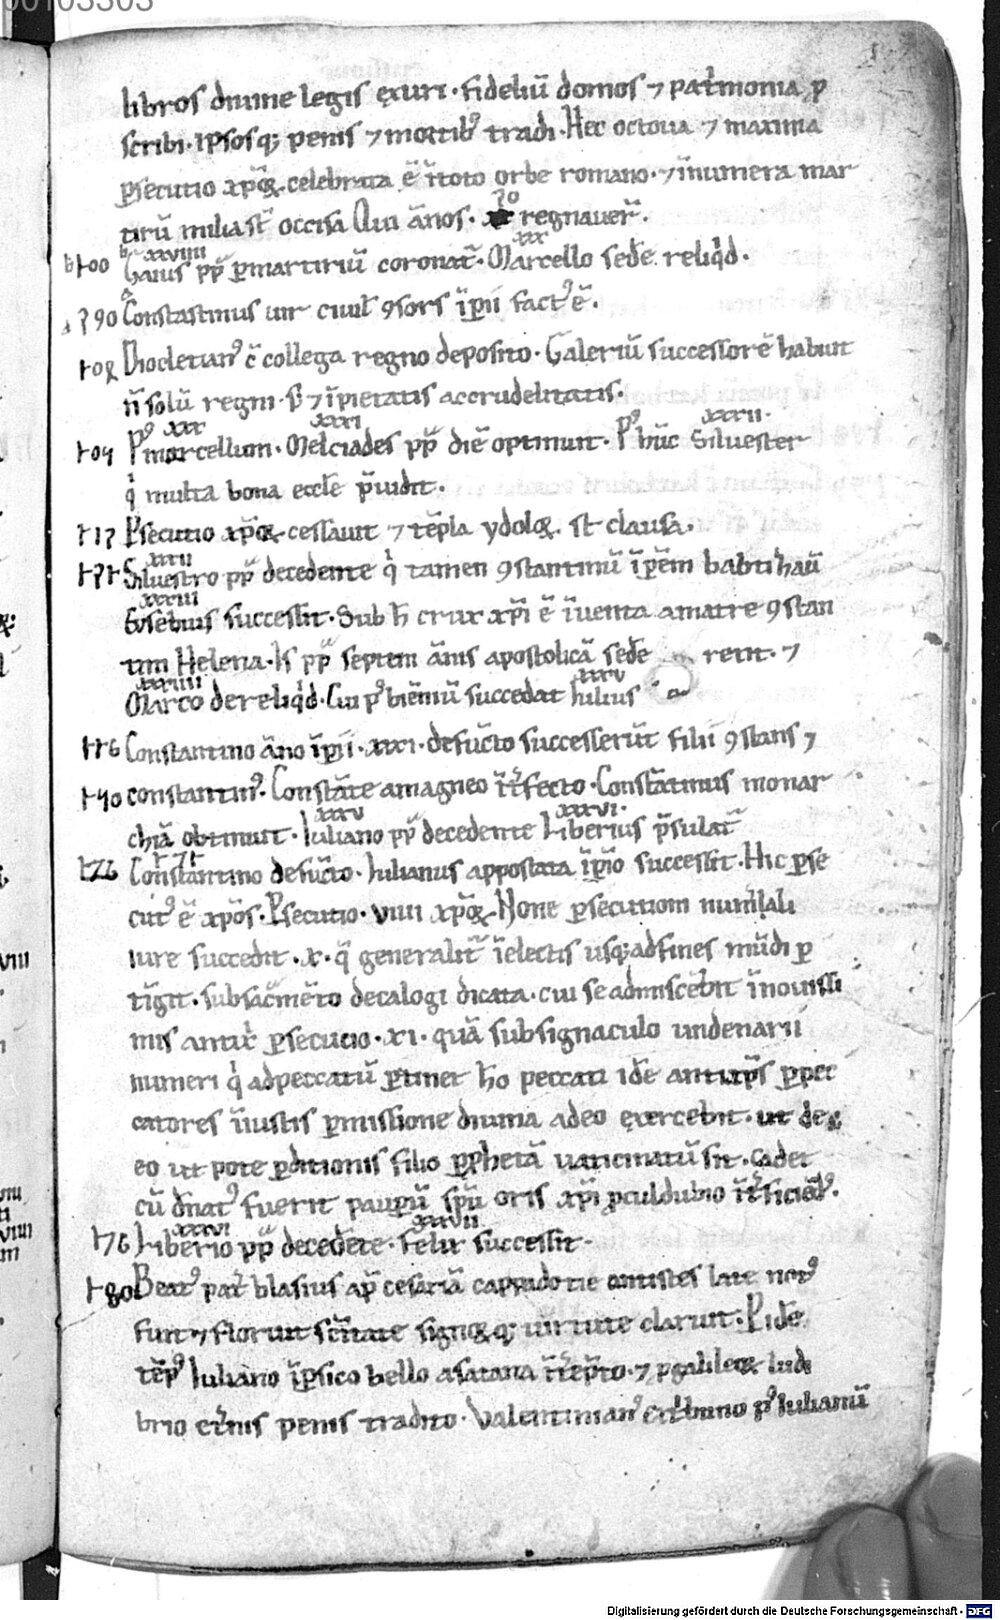 libros diuine legis exuri · fideliū domos ⁊ pat̓monia p̱
scribi · Ipsosq; penis ⁊ mortib᾿ tradi · Hec octaua ⁊ maxima
ꝑsecutio xp̄oꝝ celebrata ē ī toto orbe romano · ⁊ īnumera mar
tirū milia st̄ occisa Qui ānos · regnauer̄ .
xxviiii xxx
Gaius pp̄ ꝑ martiriū coronat᷑ · Marcello sedē reliq̇d .
Constastinus uir ciuil ꝯsors īꝑii fact᾿ ē .
Diocletian᾿ c̄ collega regno deposito · Galeriū successorē habuit
n̄ solū regni · s ⁊ īpietatis ac crudelitatis .
xxx xxxi xxxii
P᾿ marcellum · Melciades pp̄ · diē optinuit · P᾿ hūc Siluester
q̇ multa bona eccl̄e p̄uidit .
Ꝑsecutio xp̄oꝝ cessauit ⁊ tēpla ydoloꝝ st̄ clausa .
xxxii
Siluestro pp̄ decedente q̇ tamen ꝯstantinū īꝑēm babti hāū
xxxiii
Eusebius successit · Sub h̄ crux xp̄i ē īuenta a matre ꝯstan
tini Helena · Is pp̄ septem ānis apostolicā sedē rexit · ⁊
xxxiiii xxxv
Marco dereliq̇d · Cui p᾿ bienniū succedat Iulius
Constantino āno īꝑii · xxxi · defūcto successerūt filii ꝯstans ⁊
1 40 constantin᾿ . Constāte a magneo īt̓fecto · Constātinus monar
xxxv xxxvi
chiā obtinuit · Iuliano pp̄ decedente Liberius p̄sulat᷑
Constantino defūcto · Iulianus appostata īꝑio successit · Hic ꝑse
cut᾿ ē xp̄os · Ꝑsecutio · viiii xp̄oꝝ None ꝑsecutioni num̓ali
iure succedit · x · q̄ generalit̓ ī electis usq; ad fines mūdi ꝑ
tīgit · sub sac̓mēto decalogi dicata · cui se admiscebit ī nouissi
mis antix̓ ꝑsecucio · xi · quā sub signaculo undenarii
numeri q̇ ad peccatū ꝑtinet hō peccati idē antixp̄s ꝑ pec
catores īiustis ꝑmissione diuina adeo exercebit · ut de
eo ut pote ꝑditionis filio ꝑ ꝓphetā uaticinatū sit · Cadet
cū dn̄at᾿ fuerit pauꝑū sp̄u oris xp̄i ꝓculdubio īt̓ficiēd᾿ .
xxxvi xxxvii
Liberio pp̄ decedēte · Felix successit ·
Beat᾿ pat̓ blasius ap̄ cesariā cappadocie antistes late not᾿
fuit ⁊ floruit sc̄itate signoꝝq; uirtute claruit · P idē
tēp᾿ Iuliano ī ꝑsico bello a satana īt̓ēpto · ⁊ ꝓ galileoꝝ ludi
brio et̓nis penis tradito · Valentinian᾿ p᾿ Iulianū
Digitalisierung gefördert durch die Deutsche Forschungsgemeinschaft · DFG